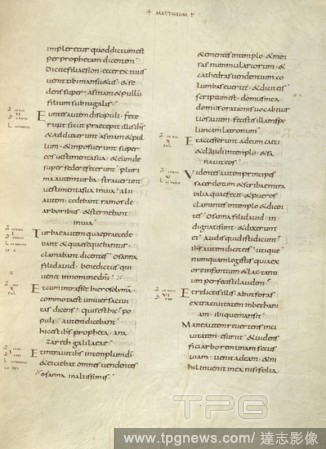 MATTHEUM
impleretur quod dictum est
per prophetam dicentem
Dicite filiae sion ecce rex tuus
uenit tibi mansuetus & se
dens super asinam & pullum
filium subiugalis
Euntes autem discipuli fece
runt sicut praecepit illis ihs
& adduxerunt asinam & pul
lum & imposuerunt super
eos uestimenta sua & eum de
super sedere fecerunt pluri
ma autem turba strauerunt
uestimenta sua in uia alii
autem caedebant ramos de
arboribus & sternebant
in uia
Turbae autem quae praecede
bant & quae sequebantur
clamabant dicentes osanna
filio dauid benedictus qui
uenit in nomine dni
Et cum intrasset hierosolymam
commota est uniuersa ciui
tas dicens quis est hic po
puli autem dicebant
hic est ihs propheta a na
zareth galilaeae
Et intrauit ihs in templum di
& eiciebat omnes uendentes
osanna in altissimis
& ementes in templo & men
sas nummulariorum &
cathedras uendentium co
lumbas euertit & dicit eis
scriptum est domus mea
domus orationis uocabitur
uos autem fecistis illam spe
luncam latronum
Et accesserunt ad eum caeci
& claudi in templo & sa
nauit eos
Videntes autem principes
sacerdotum & scribae mira
bilia quae fecit & pueros
clamantes in templo & dicen
tes osanna filio dauid in
dignati sunt & dixerunt
ei audis quid isti dicunt
ihs autem dicit eis utique
numquam legistis quia ex
ore infantium & lactantiu
um perfecisti laudem
Et relictis illis abiit foras
extra ciuitatem in bethani
am ibique mansit
Mane autem reuertens in ci
uitatem esuriit & uidens
fici arborem unam secus
uiam uenit ad eam & ni
hil inuenit in ea nisi folia
TPG
www.tpgnews.com/達志影像